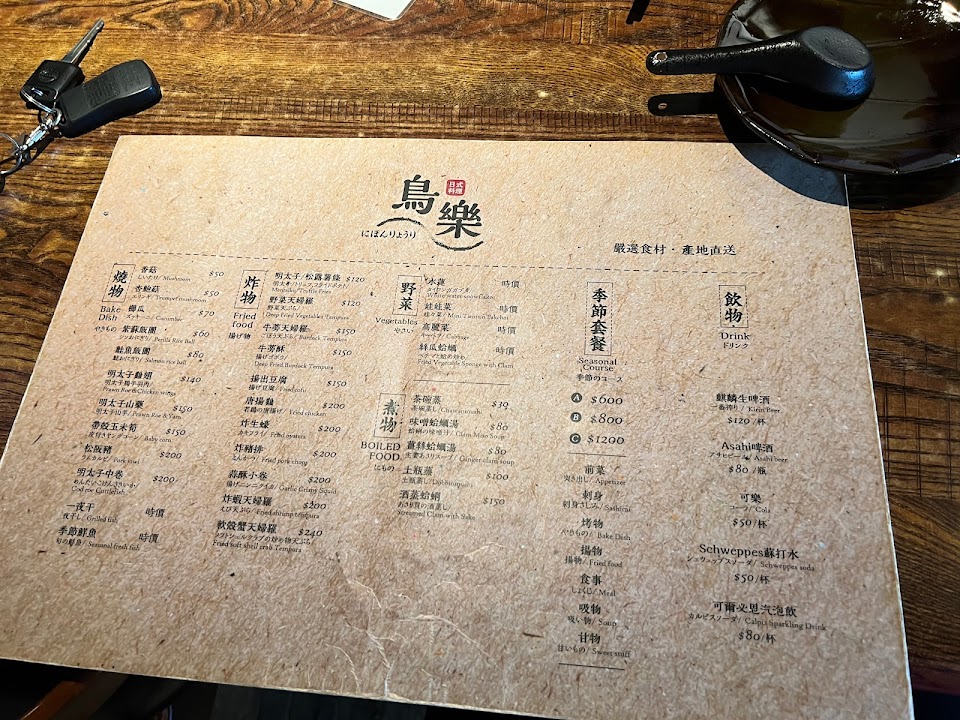 鳥樂
日式
料理
にほんりょうり
嚴選食材・產地直送
燒物
Bake
Dish
やきもの
香菇 $50
しいたけ/ Mushroom
杏鮑菇 $50
エリンギ/ Trumpet mushroom
櫛瓜 $70
ズッキーニ/ Cucumber
紫蘇飯團 $60
シソおにぎり/ Perilla Rice Ball
鮭魚飯團 $80
鮭おにぎり/ Salmon rice ball
明太子雞翅 $140
明太子鶏手羽肉/
Prawn Roe & Chicken wings
明太子山藥 $150
明太子山芋/ Prawn Roe & Yam
帶殼玉米筍 $150
皮付きヤングコーン/ Baby corn
松阪豬 $200
トンカルビ/ Pork jowl
明太子中卷 $200
Cod roe Cuttlefish
一夜干 時價
夜干し/ Grilled fish
季節鮮魚 時價
旬の鮮魚/ Seasonal fresh fish
炸物
Fried
food
揚げ物
明太子/松露薯條 $120
明太子/トリュフフライドポテト/
Mentaiko/Truffle Fries
野菜天婦羅 $120
野菜天ぷら/
Deep Fried Vegetables Tempura
牛蒡天婦羅 $150
ごぼう天ぷら/ Burdock Tempura
牛蒡酥 $150
揚げゴボウ/
Deep Fried Burdock Tempura
揚出豆腐 $150
揚げ豆腐/ Fried tofu
唐揚雞 $200
若鶏の唐揚げ/ Fried chicken
炸生蠔 $200
カキフライ/ Fried oysters
炸豬排 $200
とんかつ/ Fried pork chop
蒜酥小卷 $200
揚げニンニクイカ/ Garlic Crispy Squid
炸蝦天婦羅 $200
えび天ぷら/ Fried shrimp tempura
軟殼蟹天婦羅 $240
ソフトシェルクラブの炒め物天ぷら/
Fried soft shell crab Tempura
野菜
Vegetables
やさい
水蓮 時價
タイワンガガブタ/
White water snowflake
娃娃菜 時價
娃々菜/ Mini Tientsin Tsaichai
高麗菜 時價
キャベツ/ Cabbage
絲瓜蛤蠣 時價
ヘチマと蛤の炒め/
Fried Vegetable Sponge with Clam
煮物
BOILED
FOOD
にもの
茶碗蒸 $39
茶碗蒸し/ Chawanmushi
味噌蛤蠣湯 $80
蛤蜊の味噌汁/ Clam Miso Soup
薑絲蛤蠣湯 $80
生姜あさりスープ/ Ginger clam soup
土瓶蒸 $100
土瓶蒸し/ Dobinmushi
酒蒸蛤蜊 $150
あさり貝の酒蒸し/
Streamed Clam with Sake
季節套餐
Seasonal
Course
季節のコース
A $600
B $800
C $1200
前菜
突き出し/ Appetizer
刺身
刺身さしみ/ Sashimi
烤物
やきもの/ Bake Dish
揚物
揚物/ Fried food
食事
しょくじ/ Meal
吸物
吸い物/ Soup
甘物
甘いもの/ Sweet stuff
飲物
Drink
ドリンク
麒麟生啤酒
一番搾り/ Kirin Beer
$120 /杯
Asahi啤酒
アサヒビール/ Asahi beer
$80 /瓶
可樂
コーラ/ Cola
$50/杯
Schweppes蘇打水
シュウェップスソーダ/ Schweppes soda
$50/杯
可爾必思汽泡飲
カルピスソーダ/ Calpis Sparkling Drink
$80/杯